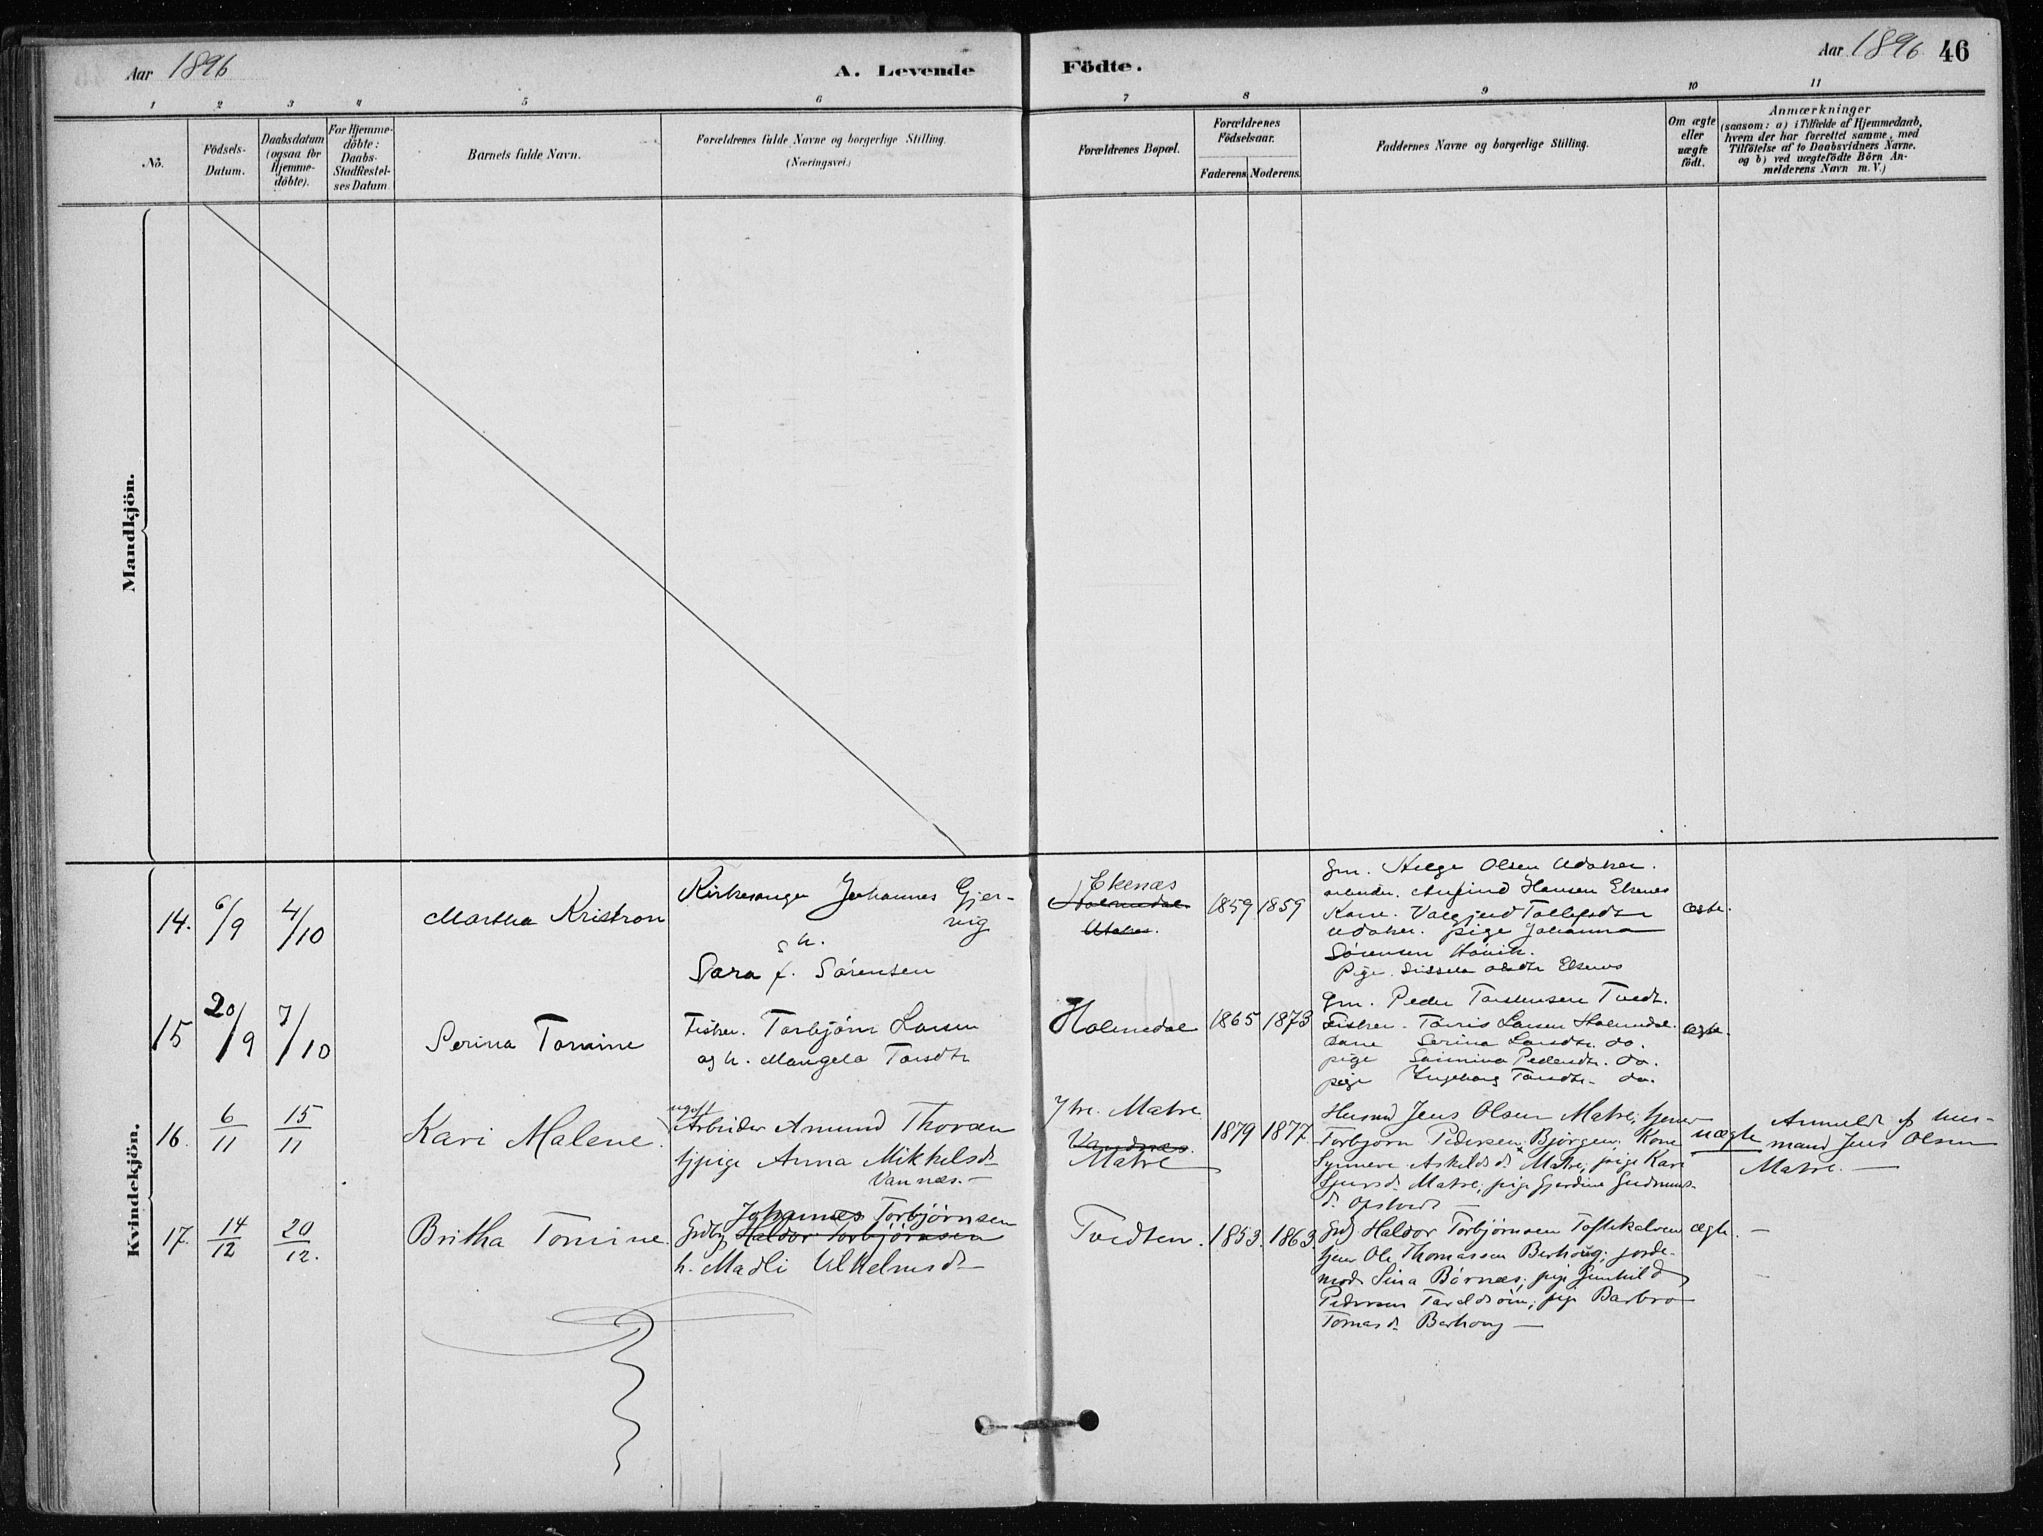 Aar 1896
A. Levende Födte.
Aar 1896. 46
1 2 3 4 5 6 7 8 9 10 11
No.
Födsels-Datum.
Daabsdatum (ogsaa for Hjemme-döbte).
For Hjemme-döbte: Daabs-Stadfæstel-ses Datum.
Barnets fulde Navn.
Forældrenes fulde Navne og borgerlige Stilling. (Næringsvei.)
Forældrenes Bopæl.
Forældrenes Födselsaar.
Faderens. Moderens.
Faddernes Navne og borgerlige Stilling.
Om ægte eller uægte födt.
Anmærkninger
(saasom: a) i Tilfælde af Hjemmedaab,
hvem der har forrettet samme, med
Tilföielse af to Daabsvidners Navne.
og b) ved uægtefödte Börn An-
melderens Navn m. V.)
Mandkjön.
Kvindekjön.
14. 6/9 4/10
Martha
Kirkesanger Johannes Gjer-
vig
h.
Sara Sørensen
Ekenæs
Holmedal
1859 1859
Gm. Helge Olsen Udaker.
Hansen Ekenæs
Kone.
Udaker. pige Johanna
Sørensen
Pige. Ekenæs
ægte.
15 20/9 7/10
Serina Tomine
Fisker. Torbjørn Larsen
og h. Mangela Tarsdtr
Holmedal
1865 1873
Gm. Peder Torstensen Tvedt.
Fisker. Larsen Holmedal.
Kone Serina Larsdtr. do.
pige Pedersdtr. do.
pige Ingeborg do.
ægte.
16. 6/11 15/11
Kari Malene.
ugift
Arbeider Amund
tjpige Anna Mikkelsd.
Vannes. —
Ytre Matre
Vandnæs.
Matre
1879 1877
Husmd Jens Olsen Matre, tjener
Torbjørn Pedersen Bjørgen, Kone
Synneve Askildsd. Matre, pige Kari
Sjursd. Matre, pige Gjerdine
d. —
uægte
Anmeldt af hus-
mand Jens Olsen
Matre. —
17. 14/12 20/12.
Britha Tomine.
Johannes Torbjørnsen
Grdbr Haldor Torbjørnsen
h. Madli
Tvedten.
1853. 1863.
Haldor Torbjørnsen Toftekalven
tjener Ole Thomassen Berhoug; jorde-
mod. Sina Børnæs; pige Gunhild
Pedersen; pige Barbro
Tomasd. Berhoug —
ægte. —